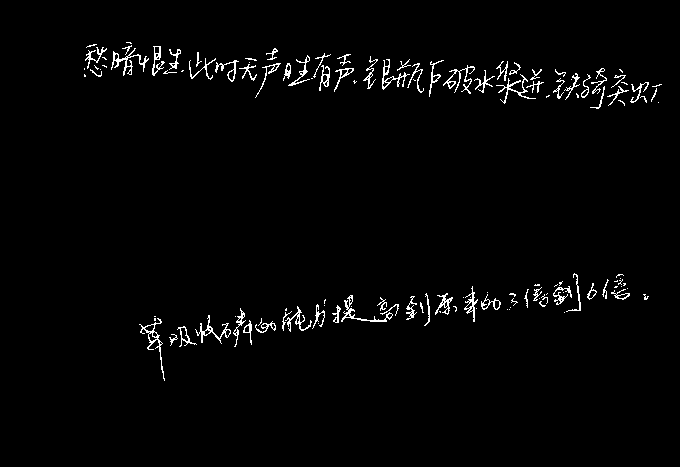 愁暗恨生.此时无声胜有声.银瓶乍破水浆迸.铁骑突出
草吸收磷的能力提高到原来的3倍到6倍。